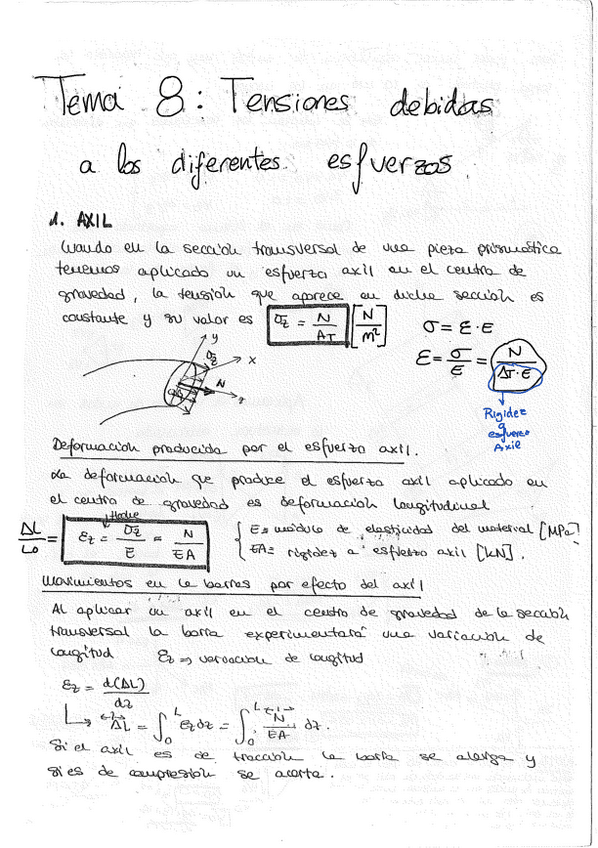 Tema 8: Tensiones debidas
a los diferentes esfuerzos.
1. AXIL
Cuando en la sección transversal de una pieza prismática
tenemos aplicado un esfuerzo axil en el centro de
gravedad, la tensión que aparece en dicha sección es
constante y su valor es σz = N/AT [N/m²]
σ = E · ε
ε = σ/E = N/(AT·E)
y
σz
x
N
z
Rigidez
a
esfuerzo
Axil
Deformación producida por el esfuerzo axil.
La deformación que produce el esfuerzo axil aplicado en
el centro de gravedad es deformación longitudinal
Hooke
ΔL/L0 = εz = σz/E = N/EA
E = módulo de elasticidad del material [MPa]
EA = rigidez a esfuerzo axil [kN].
Movimientos en la barras por efecto del axil
Al aplicar un axil en el centro de gravedad de la sección
transversal la barra experimentará una variación de
longitud εz => variación de longitud
εz = d(ΔL)/dz
↳ ΔL = ∫₀ᴸ εz dz = ∫₀ᴸ N/EA dz.
Si el axil es de tracción la barra se alarga y
si es de compresión se acorta.